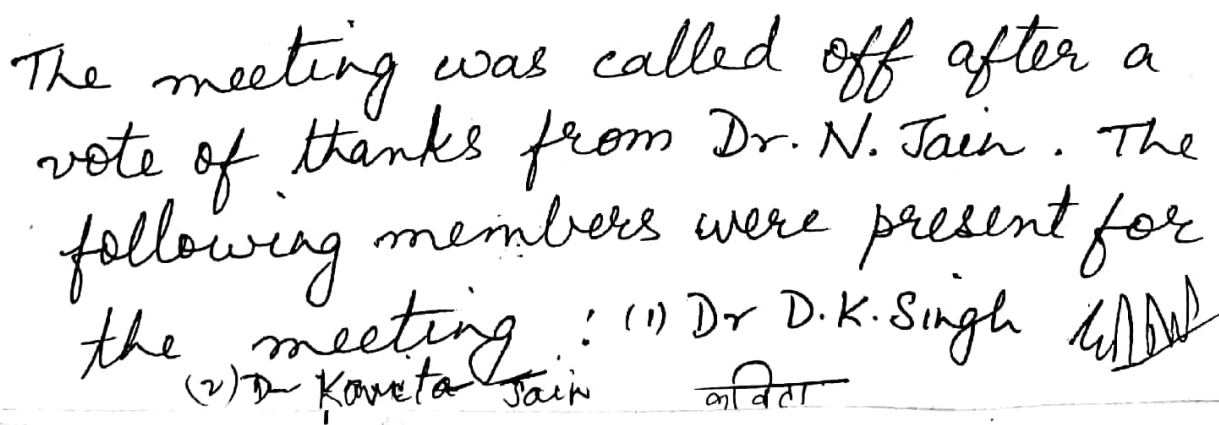 The meeting was called off after a
vote of thanks from Dr. N. Jain. The
following members were present for
the meeting : (1) Dr D.K. Singh
(2) Dr Kaveta Jain कविता